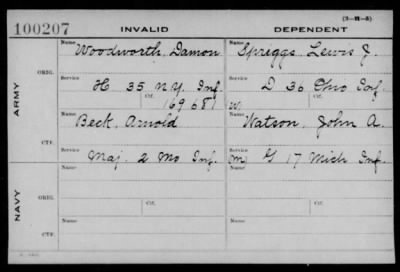 (3-H-5)
100207 INVALID DEPENDENT
Name Woodworth, Damon Name Spriggs, Lewis J.
ARMY
ORIG.
Service H 35 N.Y. Inf. Service D 36 Ohio Inf.
Ctf. 169681 Ctf. w
CTF.
Name Beck, Arnold Name Watson, John A.
Service Maj. 2 Mo Inf. Service m G 17 Mich Inf.
NAVY
ORIG.
Name Ctf. Name Ctf.
CTF.
Name Name